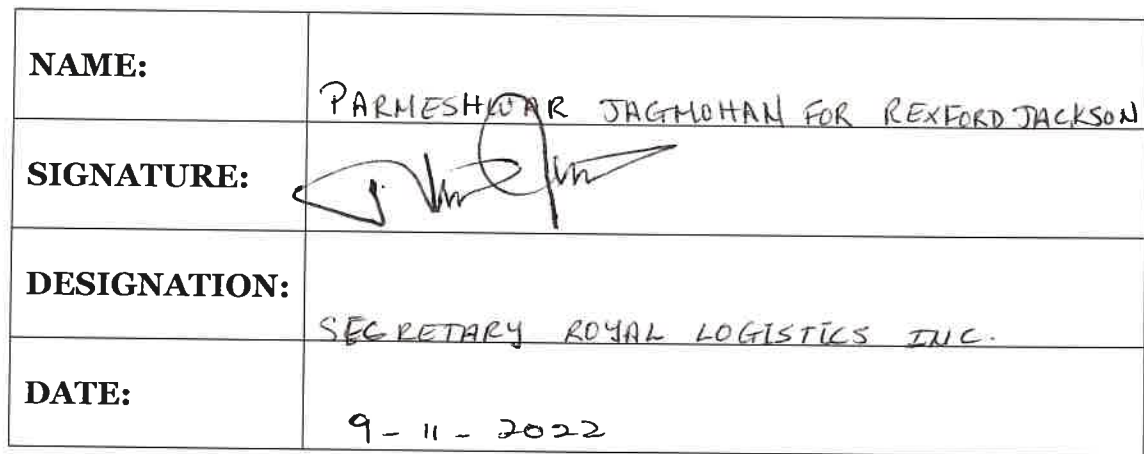 NAME:
PARMESHWAR JAGMOHAN FOR REXFORD JACKSON
SIGNATURE:
DESIGNATION:
SECRETARY ROYAL LOGISTICS INC.
DATE:
9-11-2022